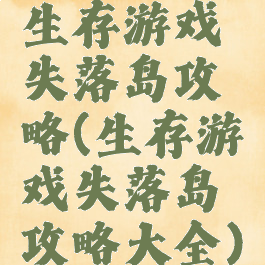 生存游戏
失落岛攻
略(生存游
戏失落岛
攻略大全)